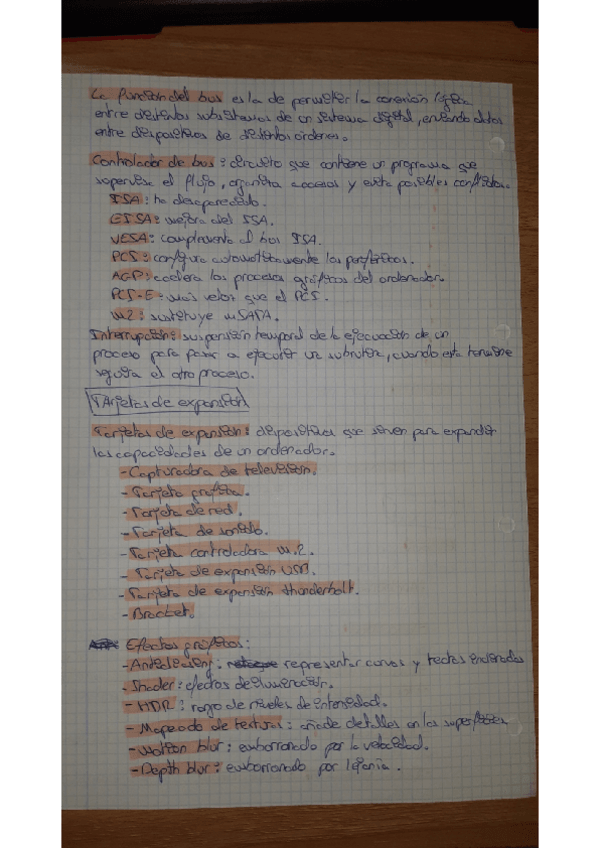 La función del bus es la de permitir la conexión lógica
entre distintos subsistemas de un sistema digital, enviando datos
entre dispositivos de distintos órdenes.
Controlador de bus: circuito que contiene un programa que
supervisa el flujo, organiza accesos y evita posibles conflictos.
ISA: ha desaparecido.
EISA: mejora del ISA.
VESA: complementa al bus ISA.
PCI: configura automáticamente los periféricos.
AGP: acelera los procesos gráficos del ordenador.
PCI-E: más veloz que el PCI.
M.2: sustituye mSATA.
Interrupción: suspensión temporal de la ejecución de un
proceso para pasar a ejecutar una subrutina, cuando esta termine
seguirá el otro proceso.
Tarjetas de expansión
Tarjetas de expansión: dispositivos que sirven para expandir
las capacidades de un ordenador.
- Capturadora de televisión.
- Tarjeta gráfica.
- Tarjeta de red.
- Tarjeta de sonido.
- Tarjeta controladora M.2.
- Tarjeta de expansión USB.
- Tarjeta de expansión thunderbolt.
- Bracket.
Efectos gráficos:
- Antialiasing: representar curvas y rectas inclinadas
- Shader: efectos de iluminación.
- HDR: rango de niveles de intensidad.
- Mapeado de texturas: añade detalles en las superficies
- Motion blur: emborronado por la velocidad.
- Depth blur: emborronado por lejanía.